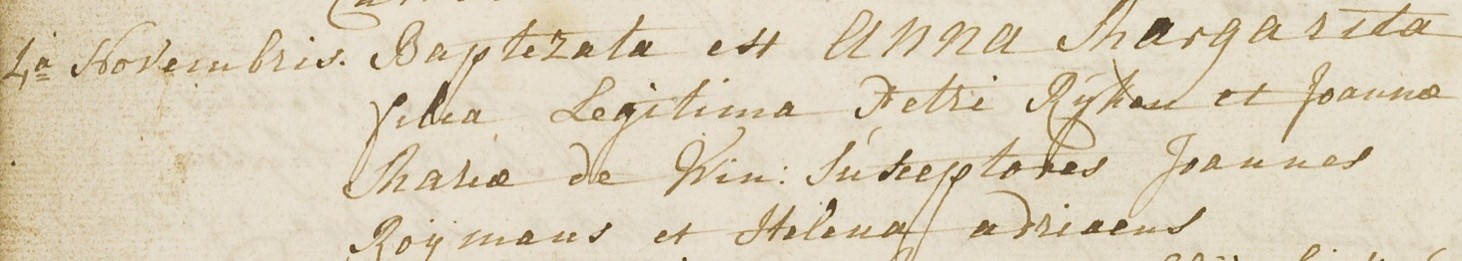 4a Novembris. Baptezata est Anna Margarita
filia Legitima Petri Ryken et Joannæ
Mariæ de Win: Susceptores Joannes
Roymans et Helena adriaens